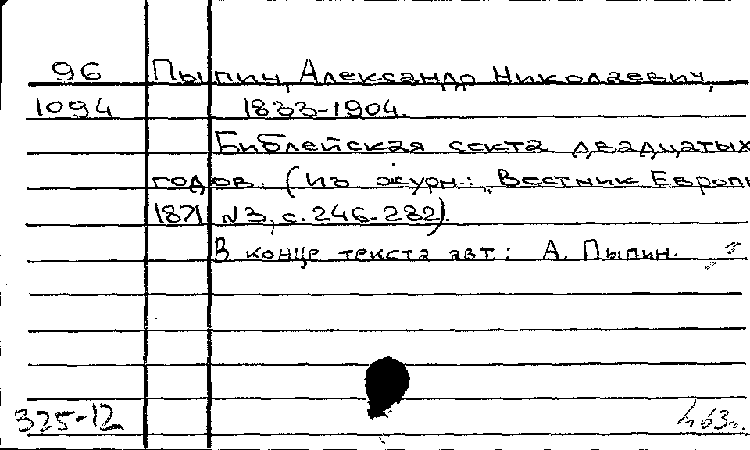 96 Пыпин, Александр Николаевич,
1094 1833-1904.
Библейская секта двадцатых
годов. (Из журн.: „Вестник Европы
1871 №3, с. 246-282).
В конце текста авт: А. Пыпин.
325-12